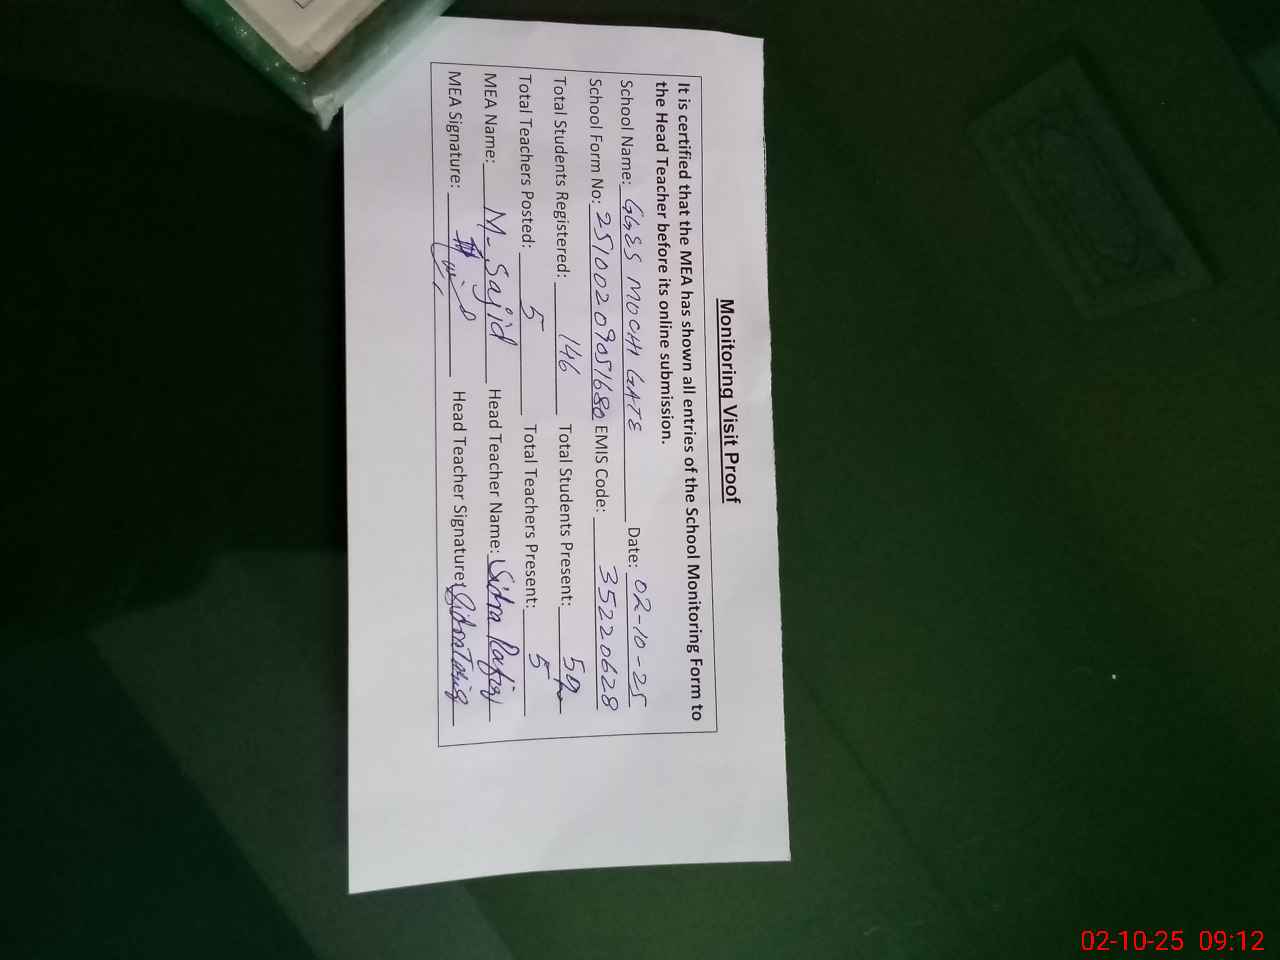 Monitoring Visit Proof
It is certified that the MEA has shown all entries of the School Monitoring Form to
the Head Teacher before its online submission.
School Name: GGES MOCHI GATE Date: 02-10-25
School Form No: 25100209051680 EMIS Code: 35220628
Total Students Registered: 146 Total Students Present: 59
Total Teachers Posted: 5 Total Teachers Present: 5
MEA Name: M. Sajid Head Teacher Name: Sidra
MEA Signature: Head Teacher Signature:
02-10-25 09:12